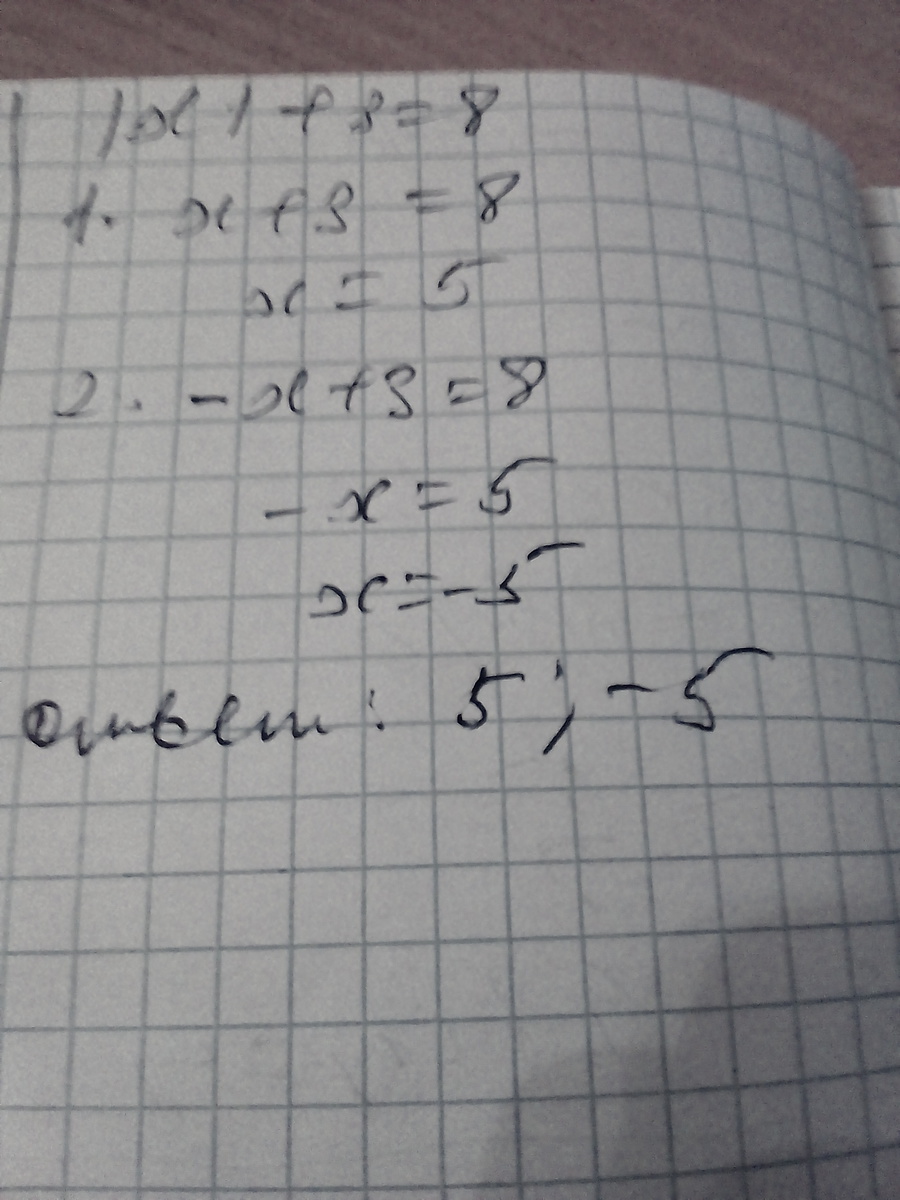 |x|+3=8
1. x+3=8
x=5
2. -x+3=8
-x=5
x=-5
Ответ: 5; -5